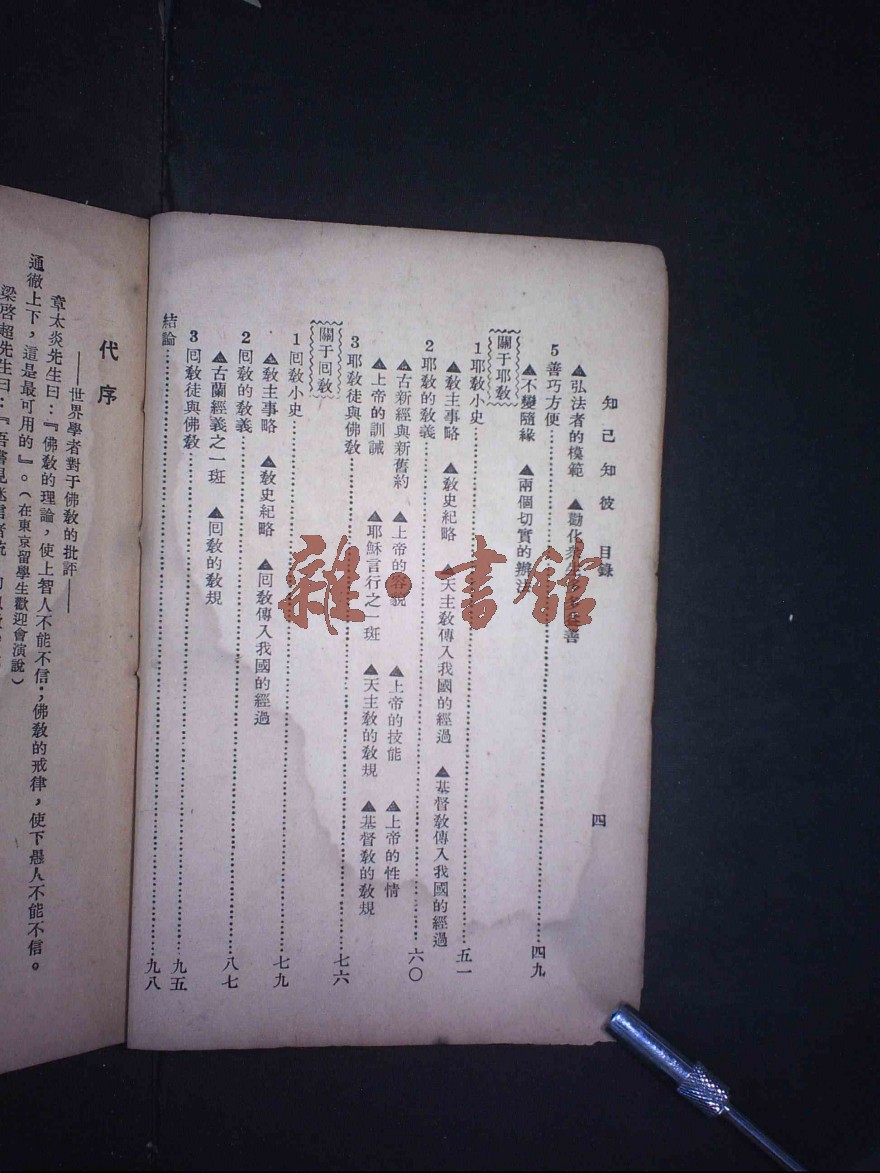 知己知彼 目錄 四
▲弘法者的模範 ▲勸化衆生 善
5 善巧方便……四九
▲不變隨緣 ▲兩個切實的辦法
關于耶教
1 耶教小史……五一
▲教主事略 ▲教史紀略 ▲天主教傳入我國的經過 ▲基督教傳入我國的經過
2 耶教的教義……六〇
▲古新經與新舊約 ▲上帝的容貌 ▲上帝的技能 ▲上帝的性情
▲上帝的訓誡 ▲耶穌言行之一斑 ▲天主教的教規 ▲基督教的教規
3 耶教徒與佛教……七六
關于回教
1 回教小史……七九
▲教主事略 ▲教史紀略 ▲回教傳入我國的經過
2 回教的教義……八七
▲古蘭經義之一斑 ▲回教的教規
3 回教徒與佛教……九五
結論……九八
代序
——世界學者對于佛教的批評——
章太炎先生曰：『佛教的理論，使上智人不能不信；佛教的戒律，使下愚人不能不信。
通徹上下，這是最可用的』。（在東京留學生歡迎會演說）
梁啓超先生曰：『吾
雜·書館